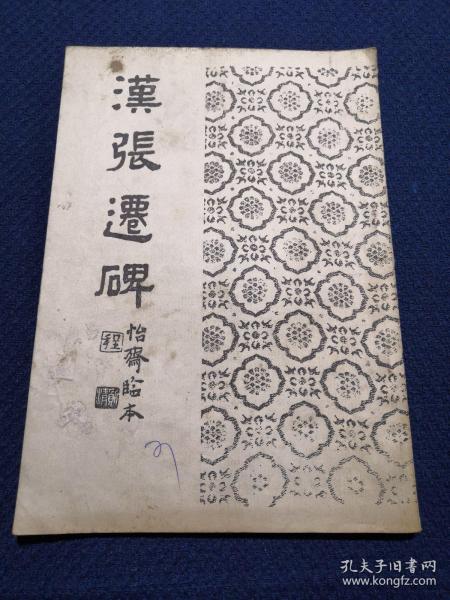 漢張遷碑
怡齋臨本
程
孔夫子旧书网
www.kongfz.com